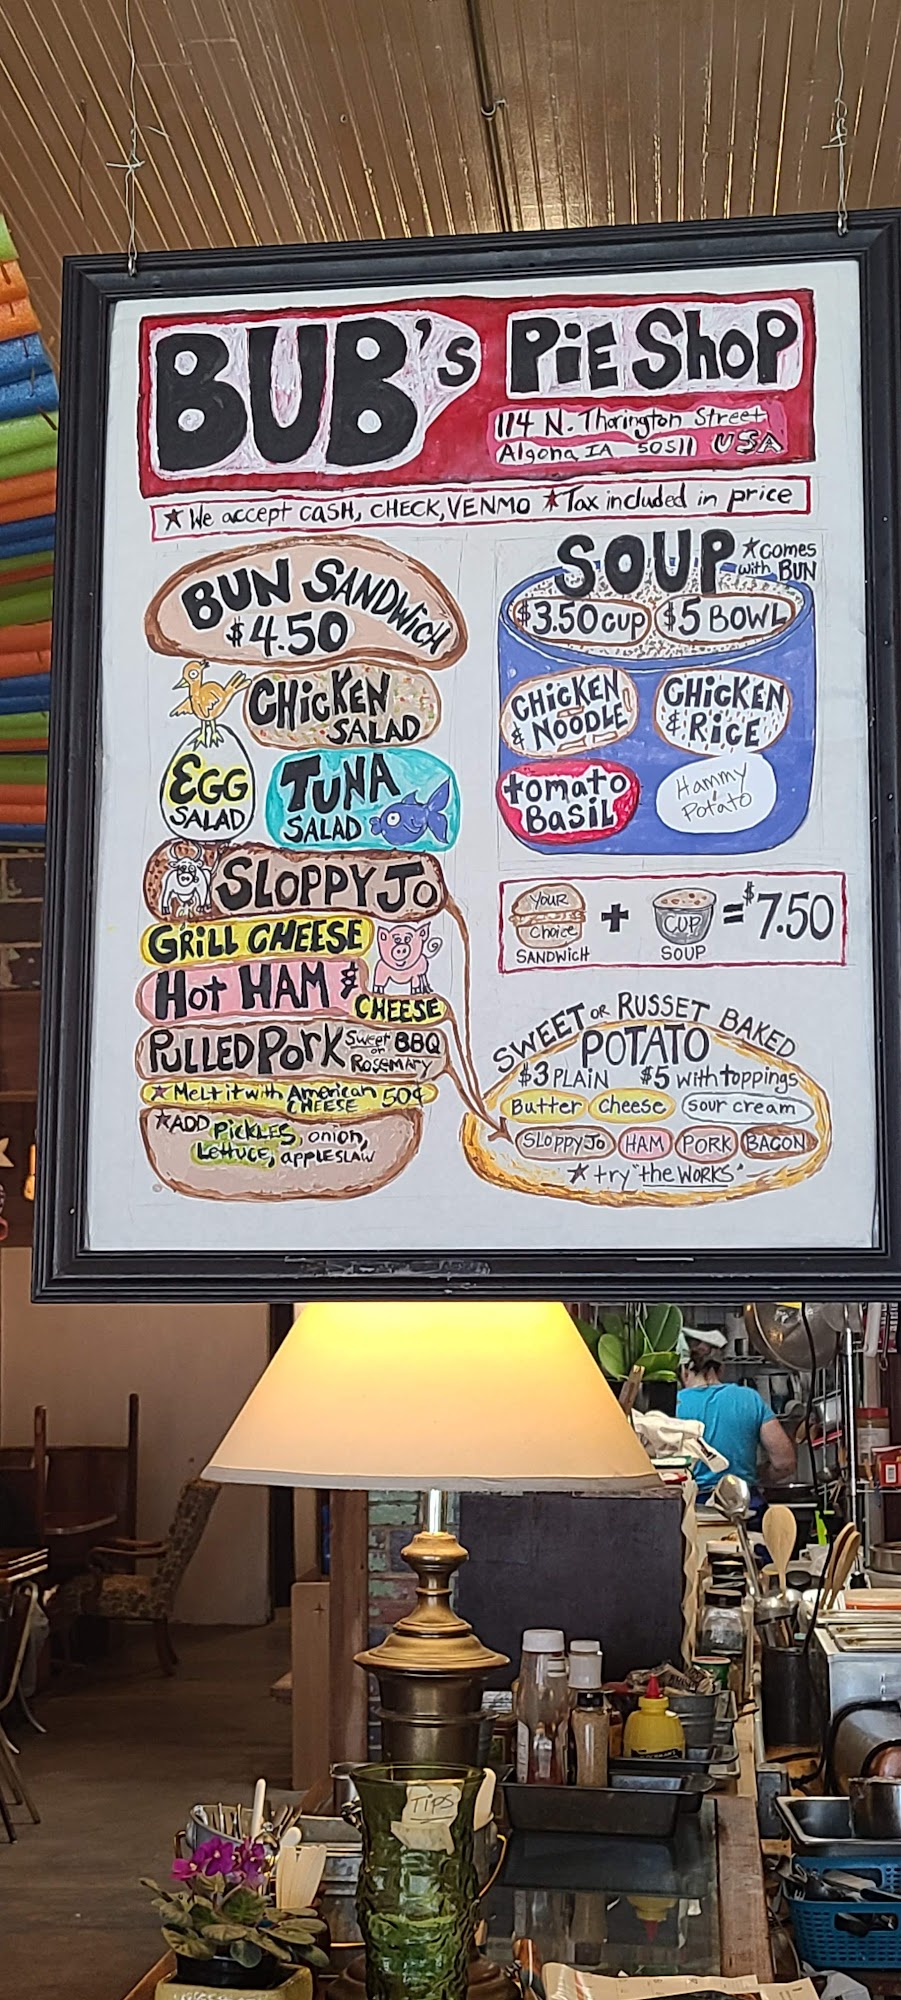 BUB's PiE ShoP
114 N. Thorington Street
Algona, IA 50511 USA
★ We accept CASH, CHECK, VENMO ★ Tax included in price
BUN SANDWicH
$4.50
CHicKEN
SALAD
EGG
SALAD
TUNA
SALAD
SLOPPY JO
GRiLL CHEESE
HoT HAM &
CHEESE
PULLED PoRK Sweet or BBQ
RoSEMARY
★ MeLt it with American CHEESE 50¢
★ADD PickLES, onion,
LettucE, APPLESLAW
SOUP ★comes
with BUN
$3.50 CUP $5 BOWL
CHicKEN
& NOODLE
CHicKEN
& RiCE
tomato
BASiL
Hammy
Potato
YOUR
Choice
SANDWicH
+
CUP
SOUP
= $7.50
SWEET OR RUSSET BAKED
POTATO
$3 PLAIN $5 with toppings
Butter Cheese sour cream
SLOPPY Jo HAM PORK BACON
★ try "the WORKS"
TiPS